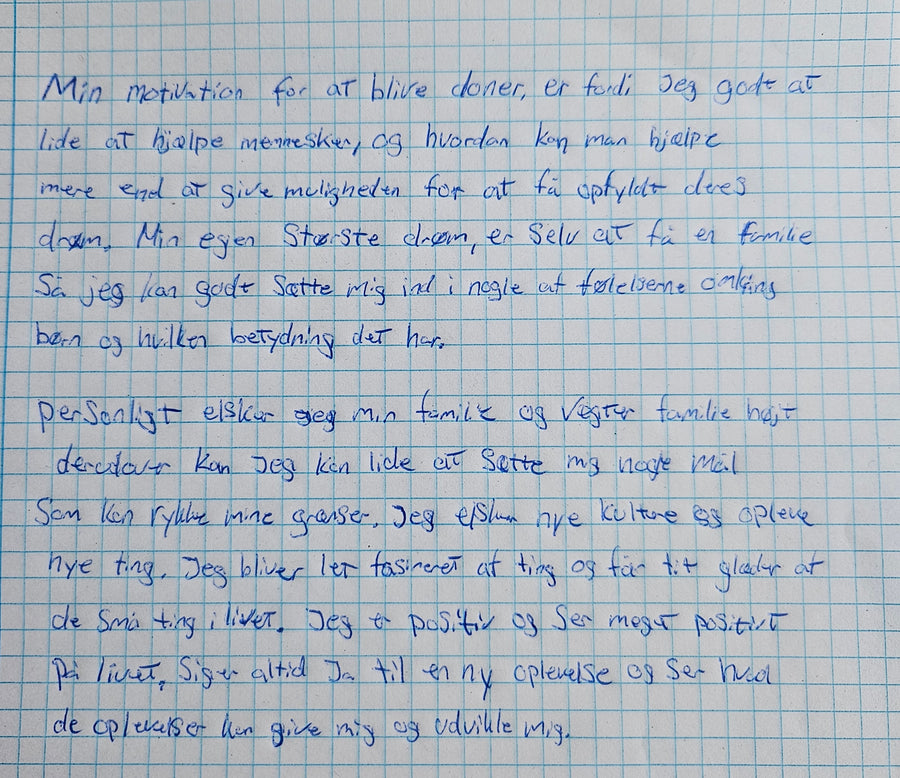 Min motivation for at blive doner, er fordi Jeg godt at
lide at hjælpe mennesker, og hvordan kan man hjælpe
mere end at give muligheden for at få opfyldt deres
drøm. Min egen Største drøm, er Selv at få en familie
Så jeg kan godt Sætte mig ind i nogle af følelserne omkring
børn og hvilken betydning det har.
personligt elsker jeg min familie og Vægter familie højt
derudover kan Jeg kan lide at Sætte mig nogle mål
Som kan rykke mine grænser. Jeg elsker nye kulture og opleve
nye ting. Jeg bliver let fasineret af ting og får tit glæder af
de Små ting i livet. Jeg er positiv og Ser meget positivt
på livet, Siger altid Ja til en ny oplevelse og Ser hvad
de oplevelser kan give mig og udvikle mig.